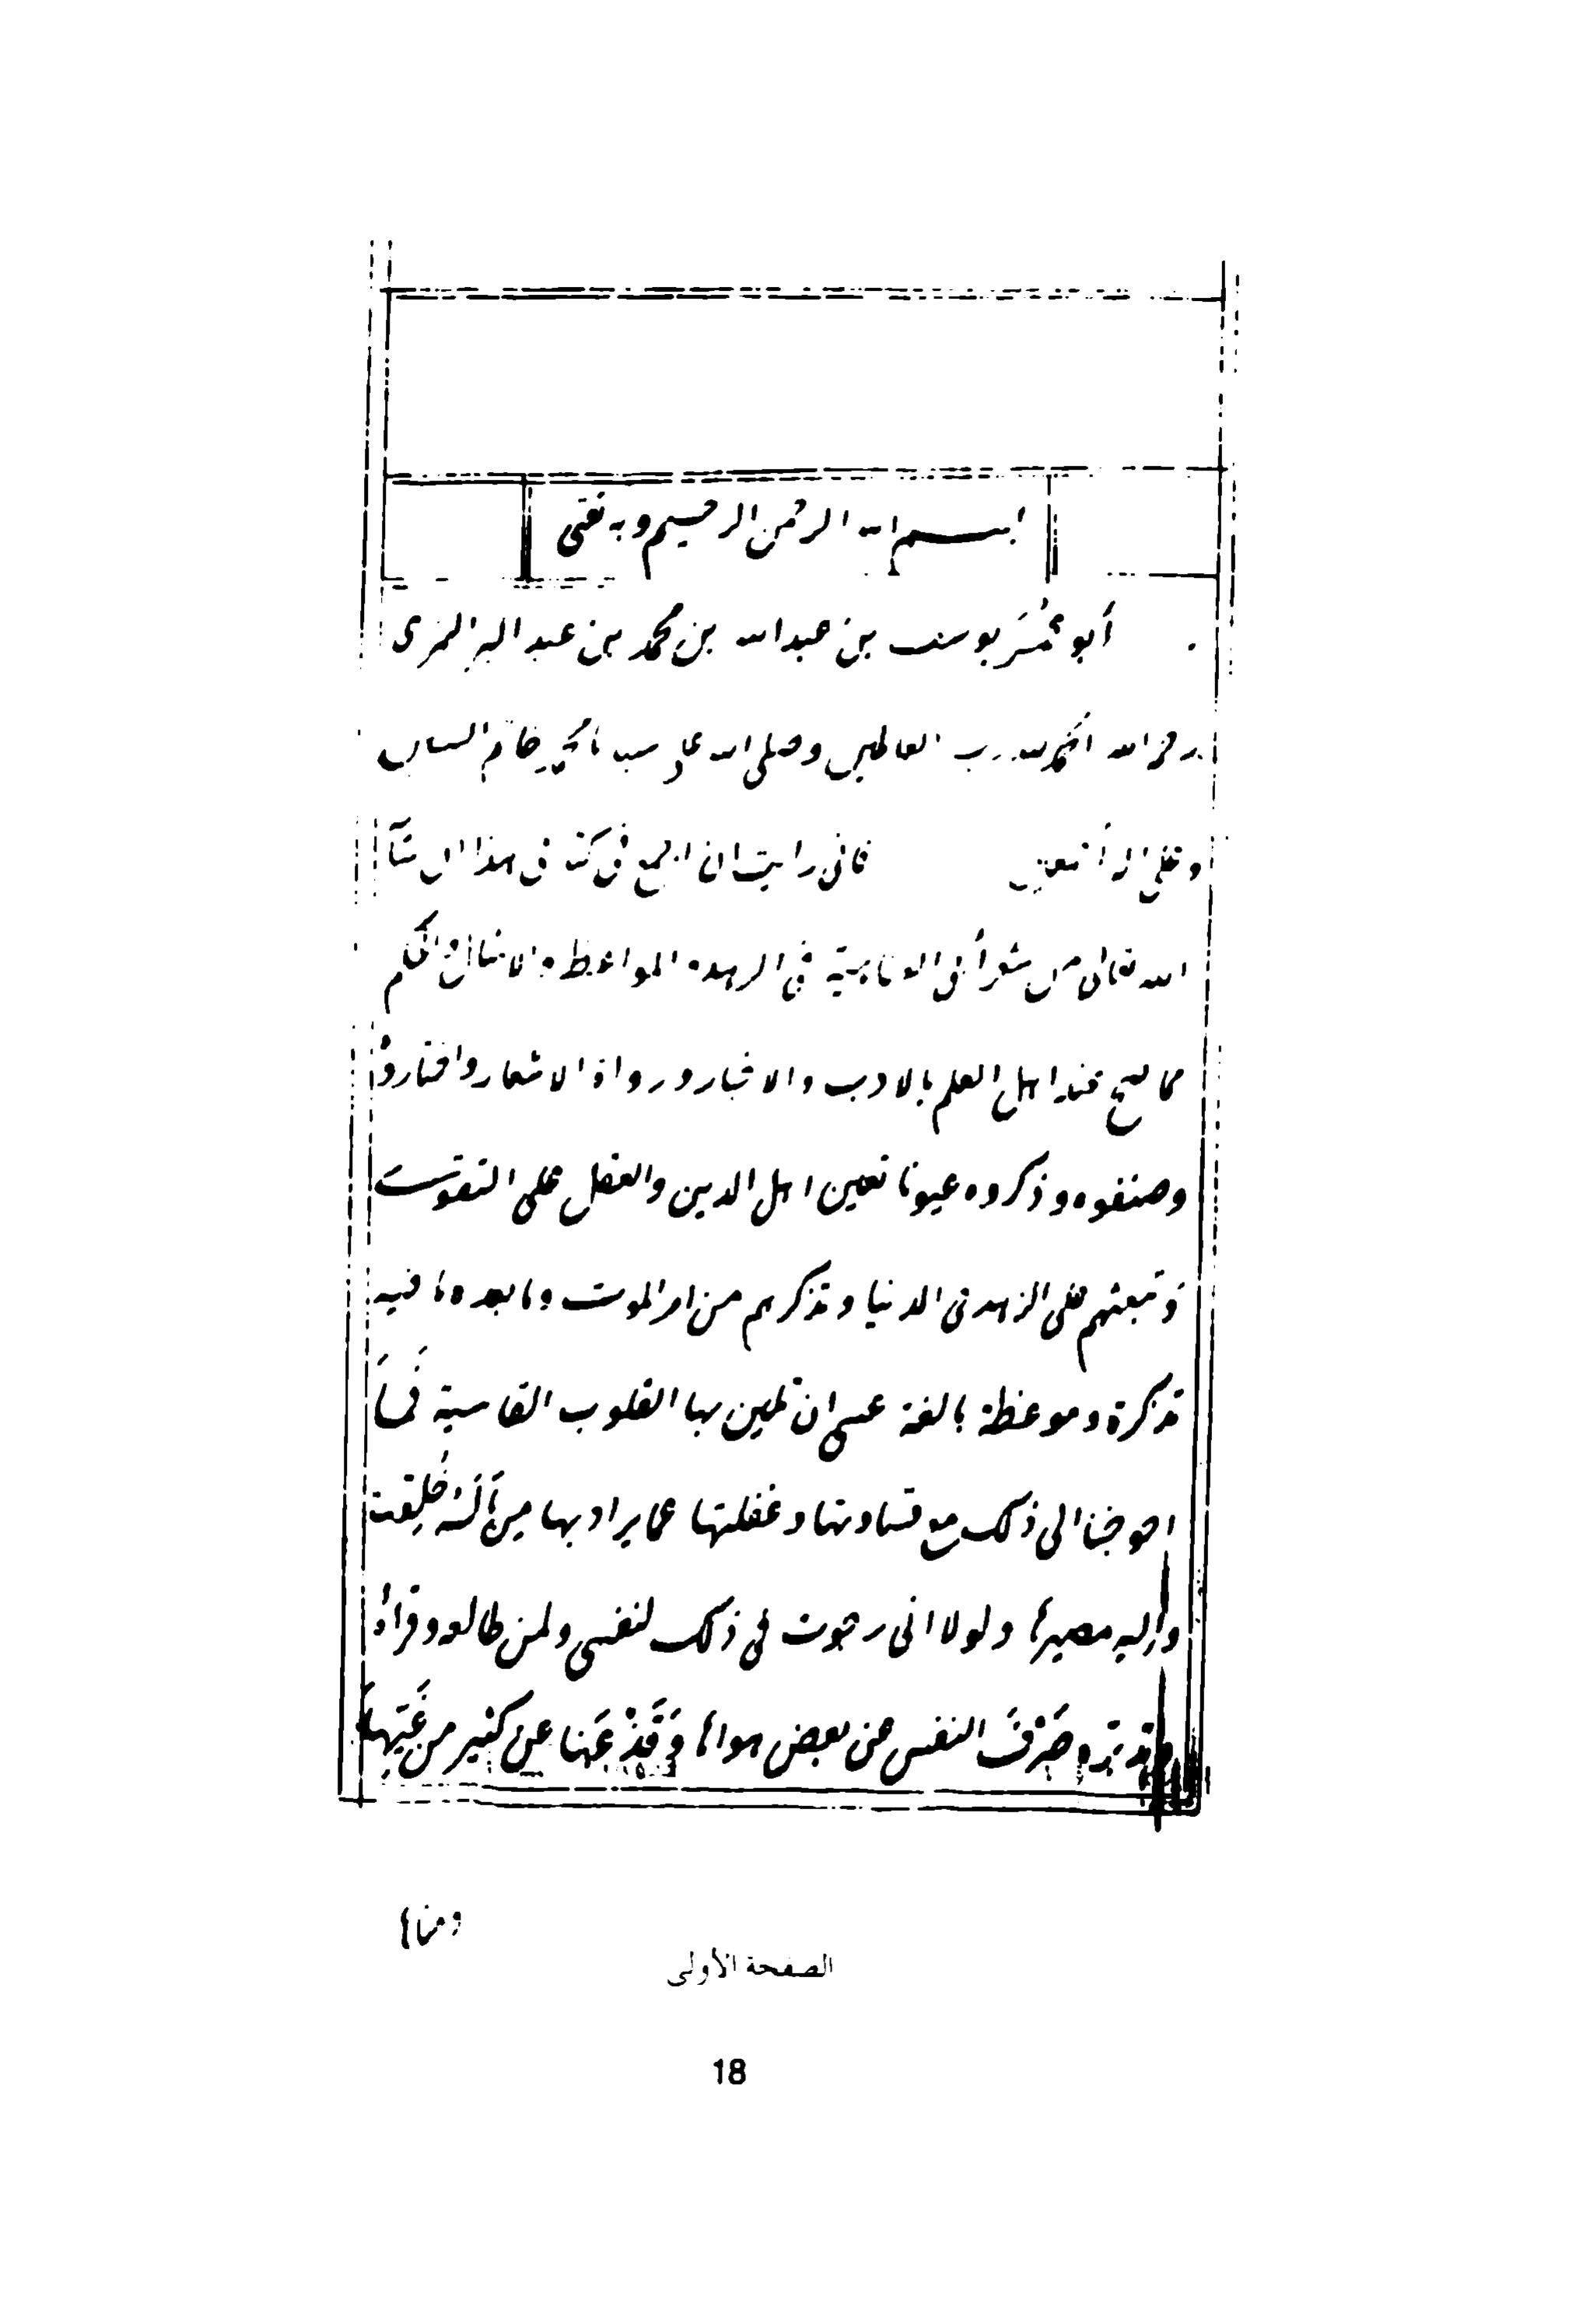 بسم الله الرحمن الرحيم وبه ثقتى
أبو عُمَر يوسف بن عبدالله بن محمد بن عبد البر النمرى
رحمه الله الحمد لله رب العالمين وصلى الله على سيدنا محمد خاتم النبيين
وعلى اله أجمعين فانى رايت ان اجمع فى كتابى هذا ان شآ
الله تعالى من شعر أبى العتاهية فى الزهد والمواعظ والامثال والحكم
مما صح عند اهل العلم بالادب والاخبار ورواة الاشعار واختاروه
وصنفوه وذكروه عيونا تعين اهل الدين والعقل على التقوى
وتبعثهم على الزهد فى الدنيا وتذكرهم من امر الموت وما بعده ما فيه
تذكرة وموعظة بالغة عسى ان تلين بها القلوب القاسية فَمَا
احوجنا الى ذلك مع قساوتها وغفلتها عما يراد بها مِمَّا لَهُ خُلِقت
واليه مصيرها ولولا انى رجوت فى ذلك لنفسى ولمن طالعه وقراهُ
وتدبره صَرْفَ النفس عن بعض هواها وَقَدْعَهَا عن كثير من غَيِّهَا
ومنا
الصفحة الأولى
18